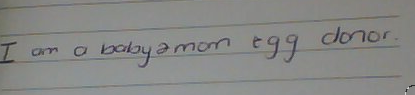 I am a baby2mom egg donor.